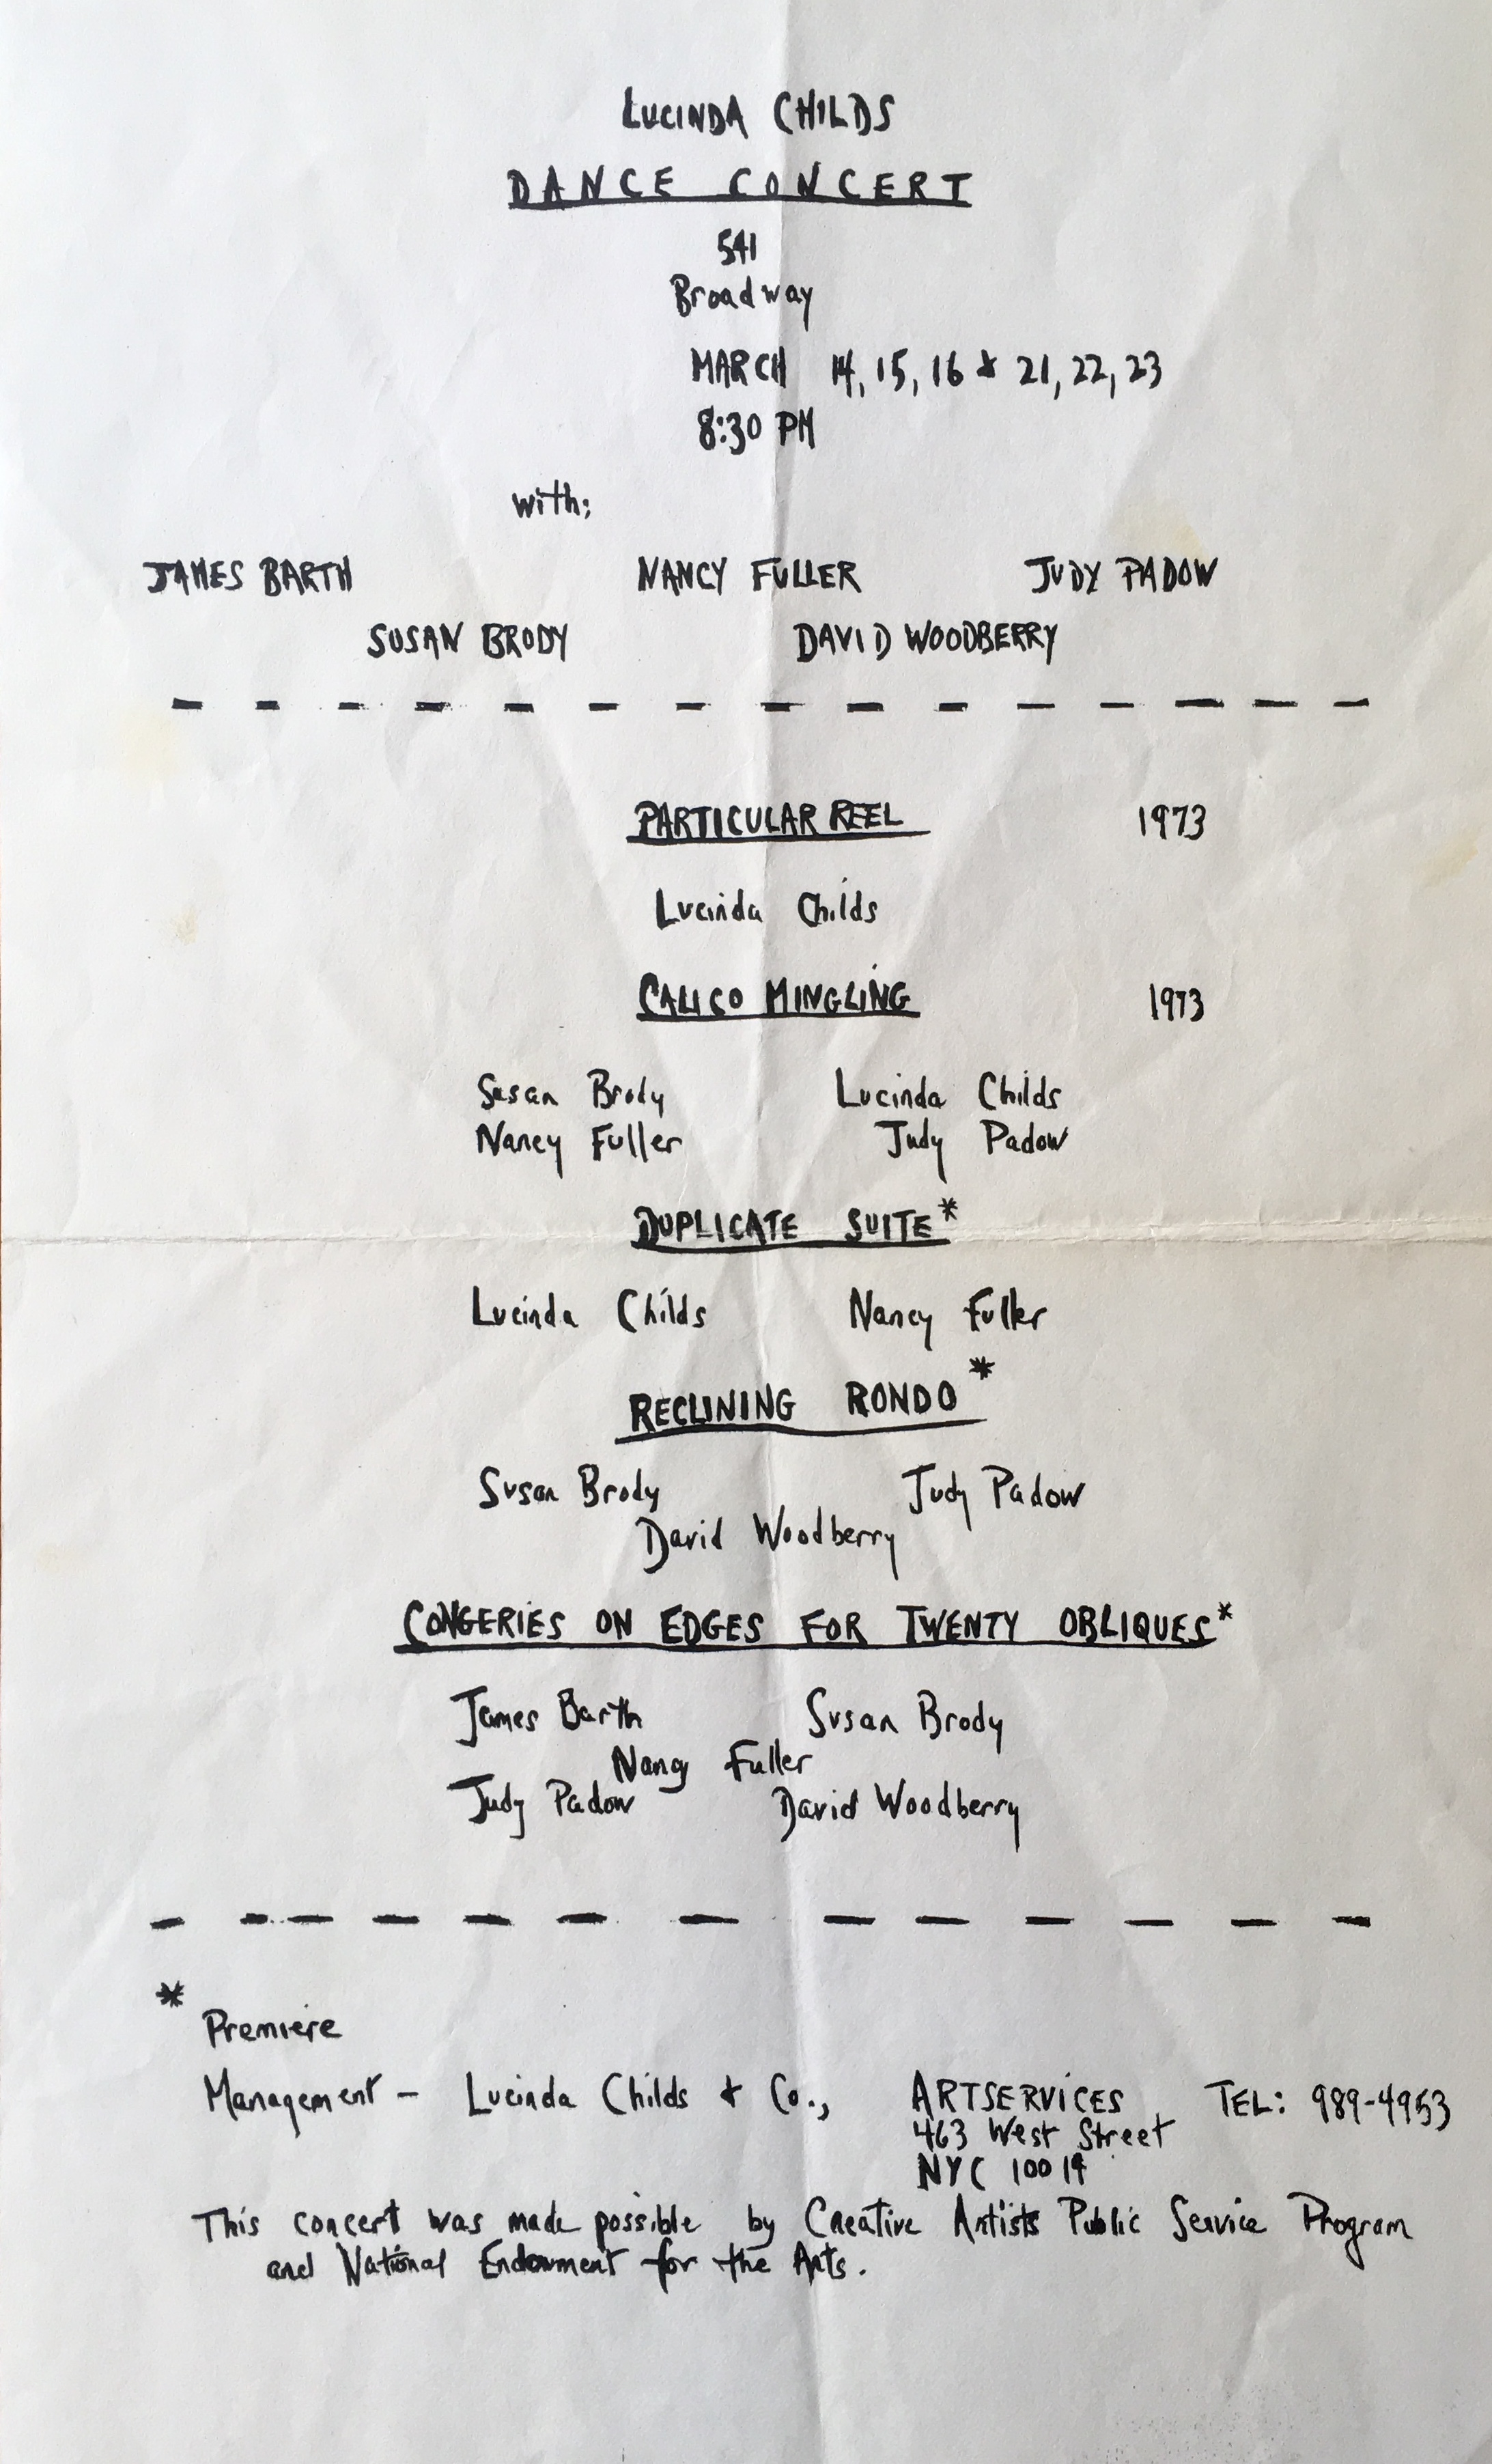 LUCINDA CHILDS
DANCE CONCERT
541
Broadway
MARCH 14, 15, 16 & 21, 22, 23
8:30 PM
with;
JAMES BARTH NANCY FULLER JUDY PADOW
SUSAN BRODY DAVID WOODBERRY
PARTICULAR REEL 1973
Lucinda Childs
CALICO MINGLING 1973
Susan Brody Lucinda Childs
Nancy Fuller Judy Padow
DUPLICATE SUITE*
Lucinda Childs Nancy Fuller
RECLINING RONDO*
Susan Brody Judy Padow
David Woodberry
CONGERIES ON EDGES FOR TWENTY OBLIQUES*
James Barth Susan Brody
Nancy Fuller
Judy Padow David Woodberry
* Premiere
Management - Lucinda Childs & Co., ARTSERVICES TEL: 989-4953
463 West Street
NYC 10014
This concert was made possible by Creative Artists Public Service Program
and National Endowment for the Arts.